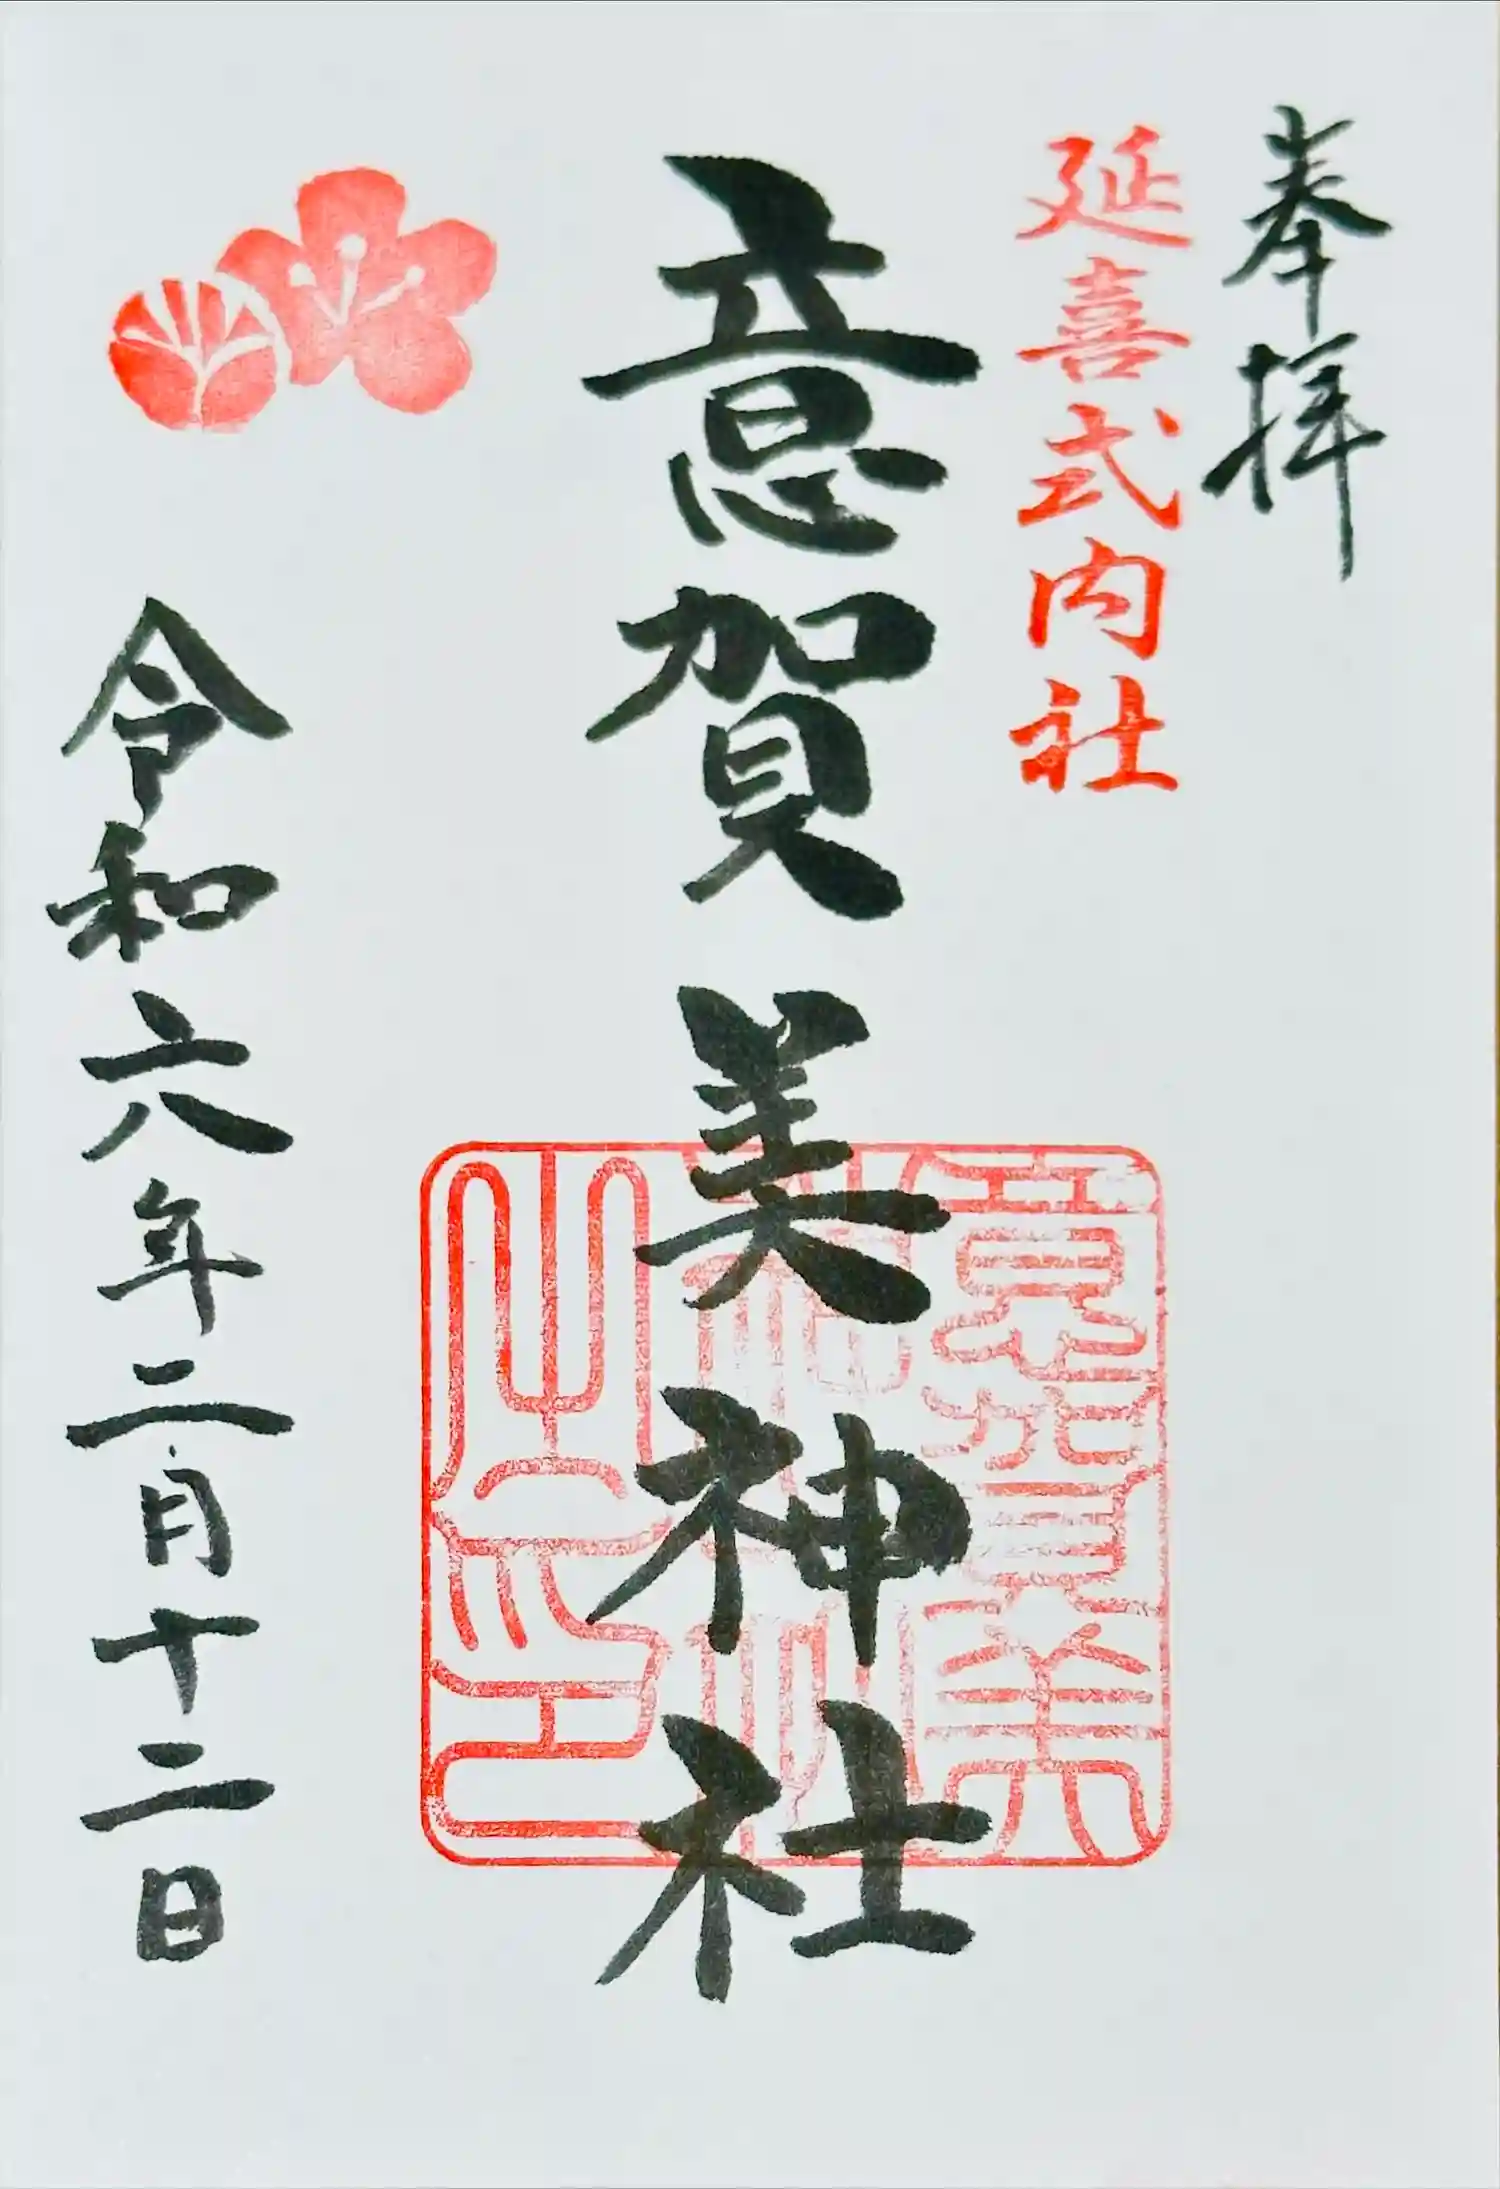 奉拝
延喜式内社
意賀美神社
意賀美
神社
之印
令和六年二月十二日